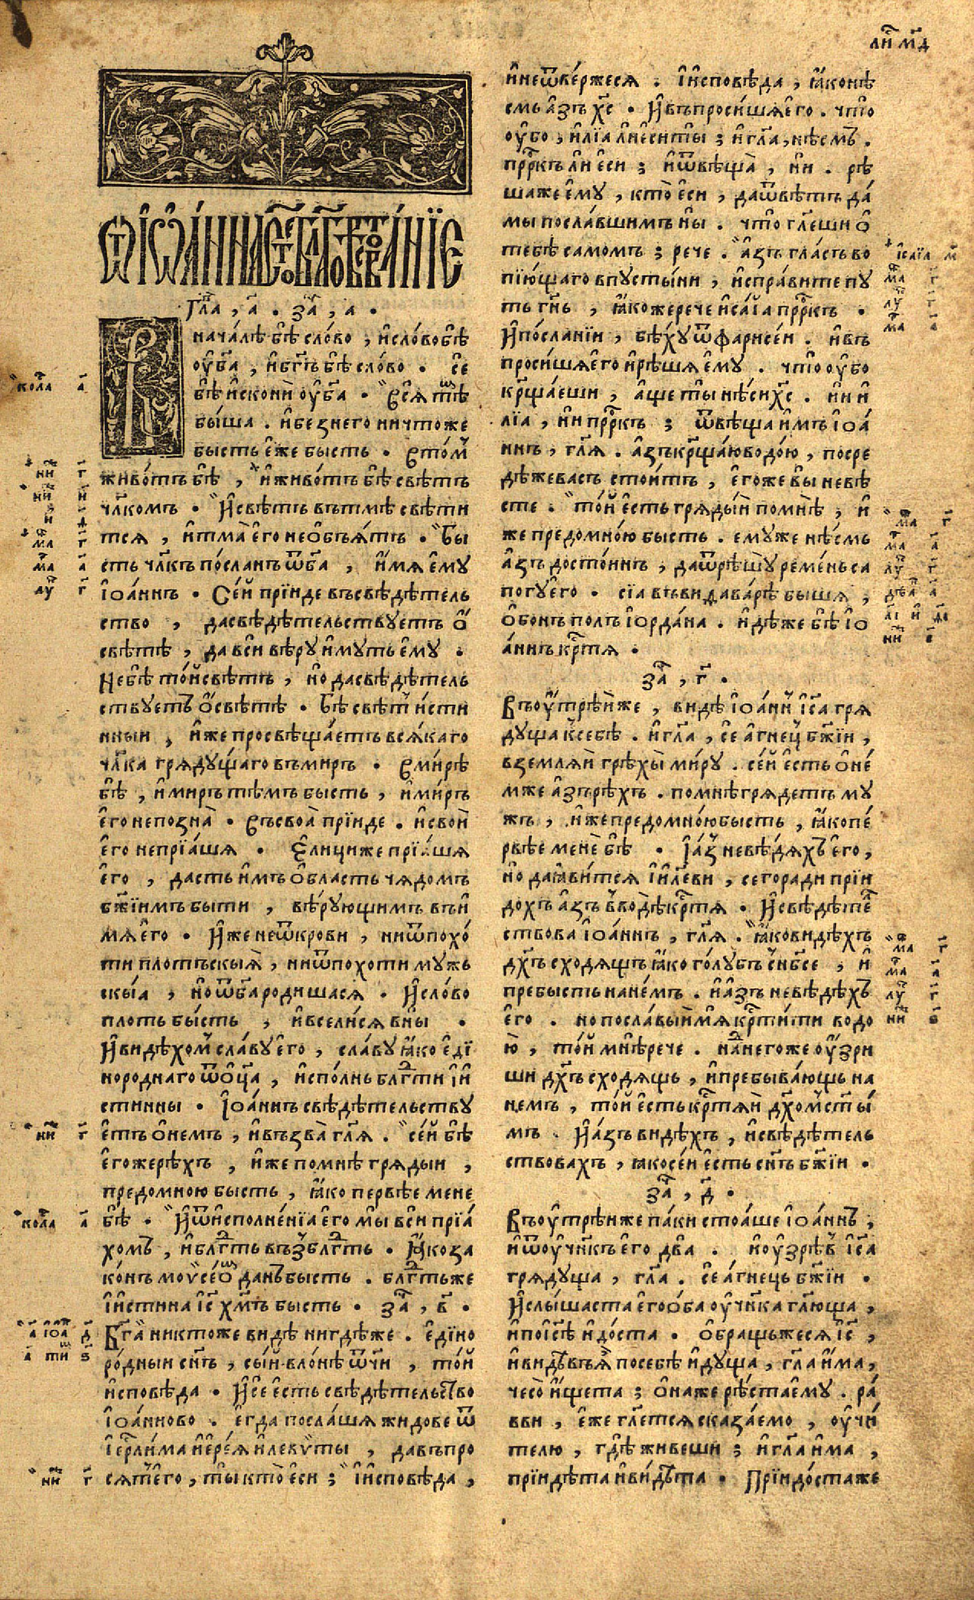 ли́ м҃д
Ѿ і҆ѡа́нна ст҃о́е бл҃говѣствова́нїе
Гла҃, а҃ . За҃, а҃ .
В
нача́лѣ бѣ̀ сло́во , и҆ сло́во бѣ̀
оу҆ б҃а , и҆ бг҃ъ бѣ̀ сло́во . се
бѣ̀ и҆сконѝ оу҆ б҃а . Всѧ тѣ̀м
бы́ша . и҆ безнего ничтоже
бысть є҆же бысть . Втом
живо́тъ бѣ̀ , и҆ живо́тъ бѣ̀ свѣ́тъ
чл҃комъ . И҆ свѣ́тъ вътмѣ̀ свѣ́ти
тсѧ , и҆ тма̀ є҆го не ѡ҆бъѧ́тъ . Бы
сть чл҃къ по́сланъ ѿ б҃а , и҆́мѧ є҆му
і҆ѡа́ннъ . Се́й прїиде въсвѣдѣ́тель
ство , да свѣдѣ́тельствуетъ ѡ҆
свѣ́тѣ , да вси вѣ́ру и҆́муть є҆му .
Не бѣ̀ то́й свѣ́тъ , но да свѣдѣ́тель
ствуетъ ѡ҆ свѣ́тѣ . Бѣ̀ свѣ́тъ и҆́сти
нныи , и҆́же просвѣща́етъ всѧ́каго
чл҃ка грѧду́щаго въмиръ . Вми́рѣ
бѣ̀ , и҆ ми́ръ тѣ́мъ бысть , и҆ ми́ръ
є҆го не позна̀ . Въ своѧ̀ прїиде . и҆ свои́
є҆го не прїѧ́шѧ . Є҆лици же прїѧ́шѧ
є҆го , дасть и҆́мъ ѡ҆́бласть чѧ́домъ
бж҃їимъ быти , вѣ́рующимъ въ и҆́
мѧ є҆го . И҆́же не ѿ крови , ни ѿ похо́
ти плотьскыѧ , ни ѿ похоти мужь
скыѧ , но ѿ б҃а роди́шасѧ . И҆ сло́во
плоть бы́сть , и҆ всели́сѧ в ны̀ .
И҆ ви́дѣхом сла́ву є҆го , сла́ву ꙗ҆́ко є҆ди
нороднаго ѿ ѻ҆ц҃а , и҆спо́лнь блг҃ти и҆ и҆́
стинны . І҆ѡа́ннъ свѣдѣ́тельству
є҆тъ ѡ҆ немъ , и҆ възва̀ гл҃ѧ . се́й бѣ̀
є҆гоже рѣ́хъ , и҆́же по мнѣ̀ грѧ́дыи ,
предо мною бысть , ꙗ҆́ко первѣе мене
бѣ̀ . И҆ ѿ и҆сполне́нїа є҆го мы̀ вси прїѧ́
хомъ , и҆ блг҃ть въз̾блг҃ть . ꙗ҆́ко за
ко́нъ мойсе́ѡм да́нъ бысть . блг҃ть же
и҆ и҆́стина і҆с҃ хм҃ъ бысть . За҃, в҃ .
Бг҃а никтоже ви́дѣ нигдѣ́же . є҆ди́но
ро́дныи сн҃ъ , сы́й в ло́нѣ ѻ҆́тчи , то́й
и҆сповѣда . И҆ се є҆сть свѣдѣ́тельство
і҆ѡа́нново . є҆гда посла́шѧ жидове ѿ
і҆ерⷭ҇ли́ма і҆ере́ѧ и҆ леѵи́ты , да въпро
сѧ́тъ є҆го , ты̀ кто̀ є҆си ; И҆ и҆сповѣда ,
и҆ не ѿве́ржесѧ . И҆ и҆сповѣда , ꙗ҆́ко нѣ̀
смь а҆́зъ хс҃ . И҆ въпроси́шѧ є҆го . что̀
оу҆бо , и҆лїа ли є҆си ты̀ ; и҆ гл҃а , нѣ́смъ .
прⷪ҇ркъ ли є҆си ; и҆ ѿвѣща̀ , нѝ . рѣ̀
ша же є҆му , кто̀ є҆си , да ѿвѣ́тъ да́
мы посла́вшимъ ны̀ . что̀ гл҃еши ѡ҆
тебѣ̀ самомъ ; рече . А҆́зъ гла́съ во
пїю́щаго в пусты́ни , и҆спра́вите пу
ть гн҃ь , ꙗ҆́коже рече и҆са́їа прⷪ҇ркъ .
И҆ по́сланїи , бѣ́ху ѿ фарисе́и . и҆ въ
проси́шѧ є҆го и҆ рѣ́шѧ є҆му . что̀ оу҆бо
крⷭ҇ща́еши , а҆́ще ты̀ нѣ́си хс҃ . ни и҆
лїа , ни прⷪ҇ркъ ; ѿвѣща и҆́мъ і҆ѡа́
ннъ , гл҃ѧ . а҆зъ крⷭ҇ща́ю водо́ю , посре
дѣ́ же васъ стои́тъ , є҆гоже вы не вѣ́
сте . то́й є҆сть грѧды́и по мнѣ̀ , и҆́
же предо мно́ю бысть . є҆муже нѣ́смь
а҆́зъ досто́инъ , да ѿрѣшу̀ реме́нь са
погу є҆го . сїа въ виѳава́рѣ бы́шѧ ,
ѡ҆б онъ по́лъ і҆ѻрда́на . и҆дѣ́же бѣ̀ і҆ѡ
а́ннъ крⷭ҇тѧ .
За҃, г҃ .
Въ оу҆́трѣй же , ви́дѣ і҆ѡа́ннъ і҆с҃а грѧ
дуща к себѣ̀ . и҆ гл҃а , се а҆́гнец бж҃їи ,
вземлѧ́й грѣхы̀ ми́ру . се́й є҆сть ѡ҆ не́
мже а҆́зъ рѣ́хъ . по мнѣ̀ грѧде́тъ му
жъ , и҆́же предо мно́ю бысть , ꙗ҆́ко пе́
рвѣе менѐ бѣ̀ . И҆ а҆́зъ не вѣ́дѧхъ є҆го ,
но да ꙗ҆ви́тсѧ і҆и҃леви , сего ради прїи
до́хъ а҆́зъ водо́ѫ крⷭ҇тѧ . И҆ свѣдѣ́тел
ствова і҆ѡа́ннъ , гл҃ѧ . ꙗ҆́ко ви́дѣхъ
дх҃ъ сходѧ́щъ ꙗ҆́ко го́лубь с нб҃се , и҆
пребысть на не́мъ . и҆ а҆́зъ не вѣ́дѣхъ
є҆го . но посла́вый мѧ̀ крⷭ҇ти́ти водо
ю , то́й мнѣ̀ рече . на него́же оу҆́зри
ши дх҃ъ сходѧ́щь , и҆ пребыва́ющь на
немъ , то́й є҆сть крⷭ҇тѧ́й дх҃ом ст҃ы́
мъ . И҆ а҆́зъ ви́дѣхъ , и҆ свѣдѣ́тель
ствовахъ , ꙗ҆́ко се́й є҆сть сн҃ъ бж҃їи .
За҃, д҃ .
Въ оу҆́трѣи же па́ки стоѧ́ше і҆ѡа́ннъ ,
и҆ ѿ оу҆чн҃къ є҆го два̀ . и҆ оу҆зрѣ́в і҆с҃а
грѧду́ща , гл҃а . се а҆́гнець бж҃їи .
И҆ слы́шаста є҆го ѻ҆́ба оу҆чн҃ка гл҃юща ,
и҆ по і҆с҃ѣ и҆до́ста . ѡ҆бра́щьжесѧ і҆с҃ ,
и҆ ви́дѣвъ ѧ̀ по себѣ и҆ду́ща , гл҃а и҆́ма ,
чесо̀ и҆́щета ; ѡ҆на́же рѣ́ста є҆му . ра́
вви , є҆́же гл҃етсѧ сказа́емо , оу҆чи́
телю , гдѣ̀ живеши ; и҆ гл҃а и҆́ма ,
прїидѣ́та и҆ ви́дѣта . Прїидо́ста же